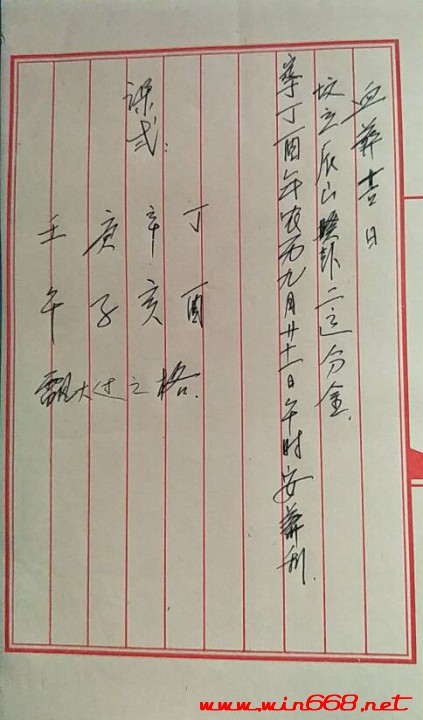 葬吉日
坟立辰山卦二运分金.
择丁酉年农历九月廿一日午时安葬利.
课式:
丁酉
辛亥
庚子
壬午
大过之格.
www.win668.net